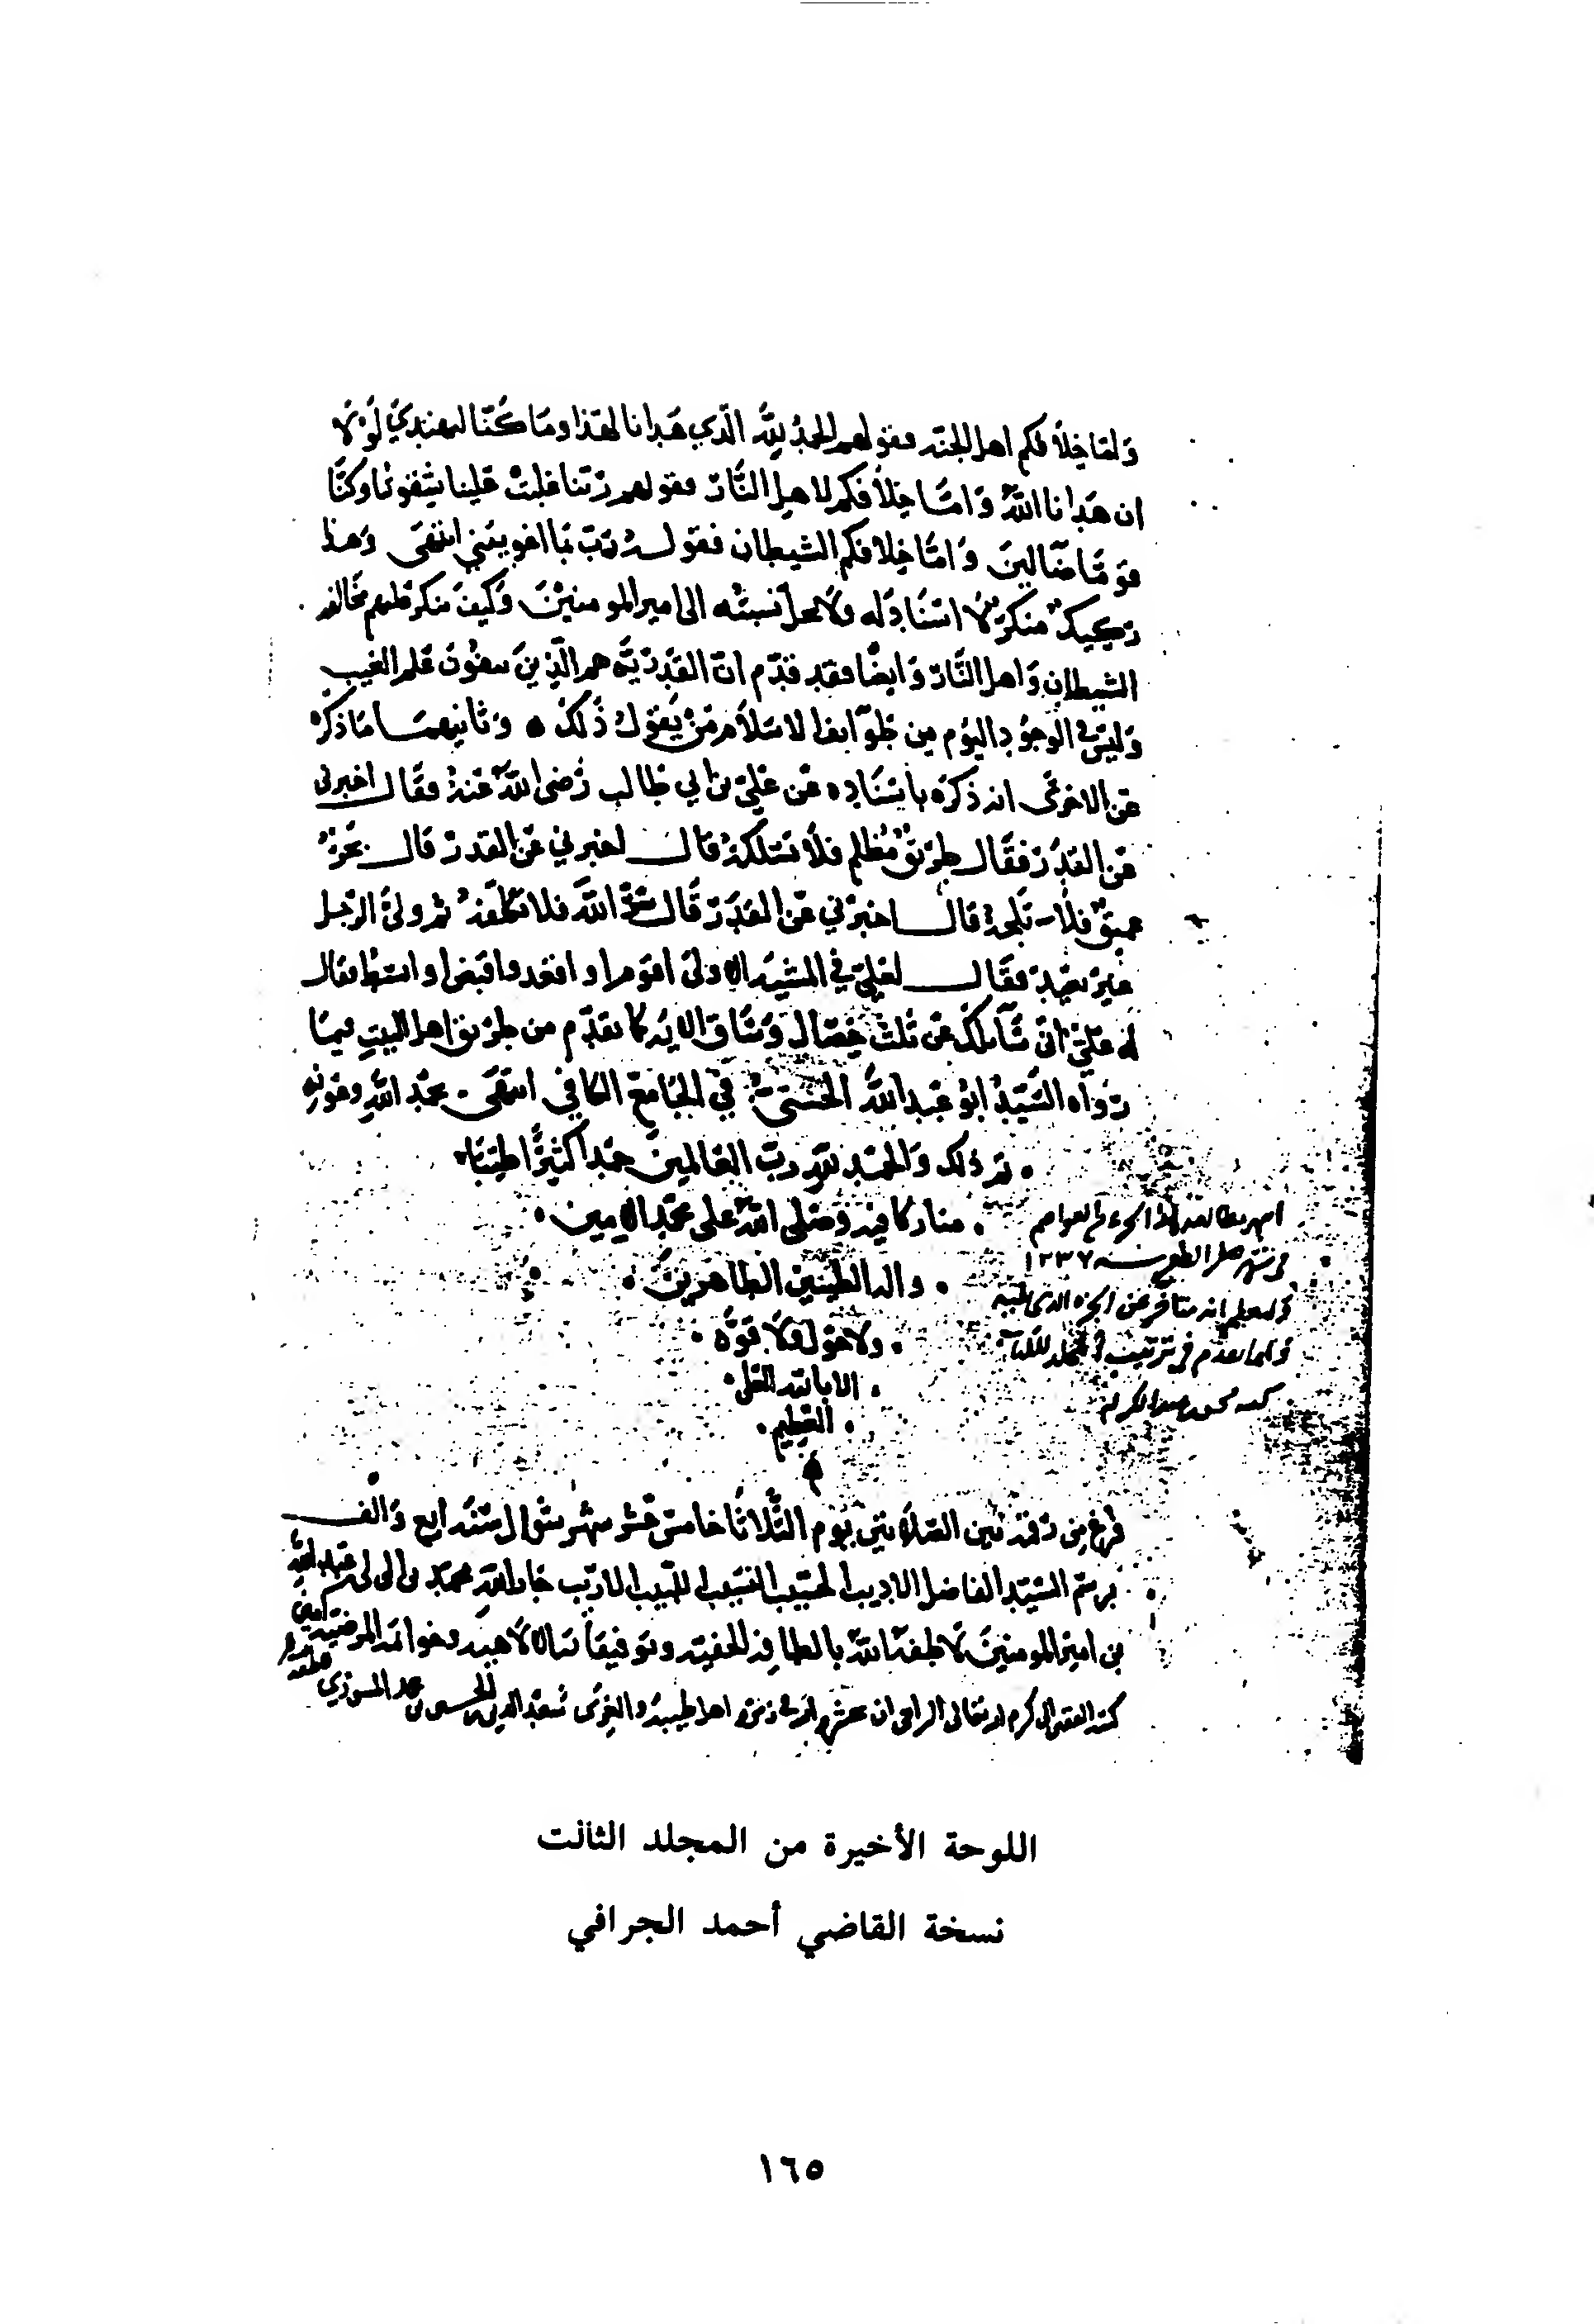 وَامَّا خِلَافكم اهل الجنة فقولهم الحمدُ للهِ الَّذي هَدانا لهذا ومَا كُنَّا لنهتديَ لَوْلَا
ان هَدانا اللهُ وَامَّا خِلَافكم لاهل النَّار فقولهم ربّنا غلبت علينا شِقوتُنا وكُنَّا
قومًا ضآلينَ وَامَّا خِلَافكم الشيطان فقولـه رَبّ بما اغويتني انتهَى وَهذا
رَكِيكٌ منكرٌ لَا اسْنَادَ له ولا يحل نسبته الى امير المومنينَ وَكيفَ ينكر عليهم مخالفة
الشيطانِ وَاهل النَّار وَايضًا فقد تقدّم انّ القَدَريّة هم الّذينَ ينفونَ علم الغيب
وَليسَ في الوجُود اليَوم مِن طوآيف الاسْلَام مَنْ يَقول ذَلكَ ٥ وَثانيهمـا مَا ذكره
عن الاخرى انه ذكره باسْنَاده عَن عَليّ بن ابي طالب رَضي اللهُ عَنهُ فقَالـ اخبرني
عَن القدَر فقَال طريقٌ مُظلم فلَا تَسلكهُ قالـ اخبرني عَن القدر قالـ بَحرٌ
عميقٌ فلَا تَلجهُ قالـ اخبرني عَن القدَر قَال سرّ اللهِ فلا تكلّفهُ ثم ولَّى الرجل
غير بعيدٍ فقَالـ لعَليّ في المشيّة الاولى اقوم وا واقعد واقبض وابسط فقال
له عَليّ انّي سَآئلكَ عَن ثلث خِصَال وَسَاق الاية كما تقدّم من طريق اهل البيتِ فيما
رَواه السَّيّدُ ابُو عَبدالله الحسَني في الجَامع الكافي انتهَى. بحمد اللهِ وعونهِ
. تم ذلك وَالحمد لله ربّ العَالمينَ حَمدًا كثيرًا طيّبًا .
. مباركا فيه وصَلى اللهُ على محمّد الامين .
. واله الطيبين الطاهرين .
. ولا حَول وَلَا قوّة .
. الا بالله العلي .
. العَظِيم .
بمطالعة هذا الجزء العواصم
في شهر سنه ١٢٣٦
وليعلم انه متاخر عن الجزء الذي
فرغ مِن رقمه بَين الصّلاتين يَوم الثُّلَاثَا خامس عَشر شهر شوّال سَنَة اربع وَالفــ
برسم السّيّد الفاضل الاديب الحسيب النسيب اللبيب
بن امير المومنينَ لَاطفهُ اللهُ بالطافه الخفيّه
كتبه الفقير الى كرم الله تعالى الراجي ان يحشره الله في زمرة اهل طيبة والغري سَعد الدين بن الحسين بن محمد المسوري
اللوحة الأخيرة من المجلد الثالث
نسخة القاضي أحمد الجرافي
١٦٥